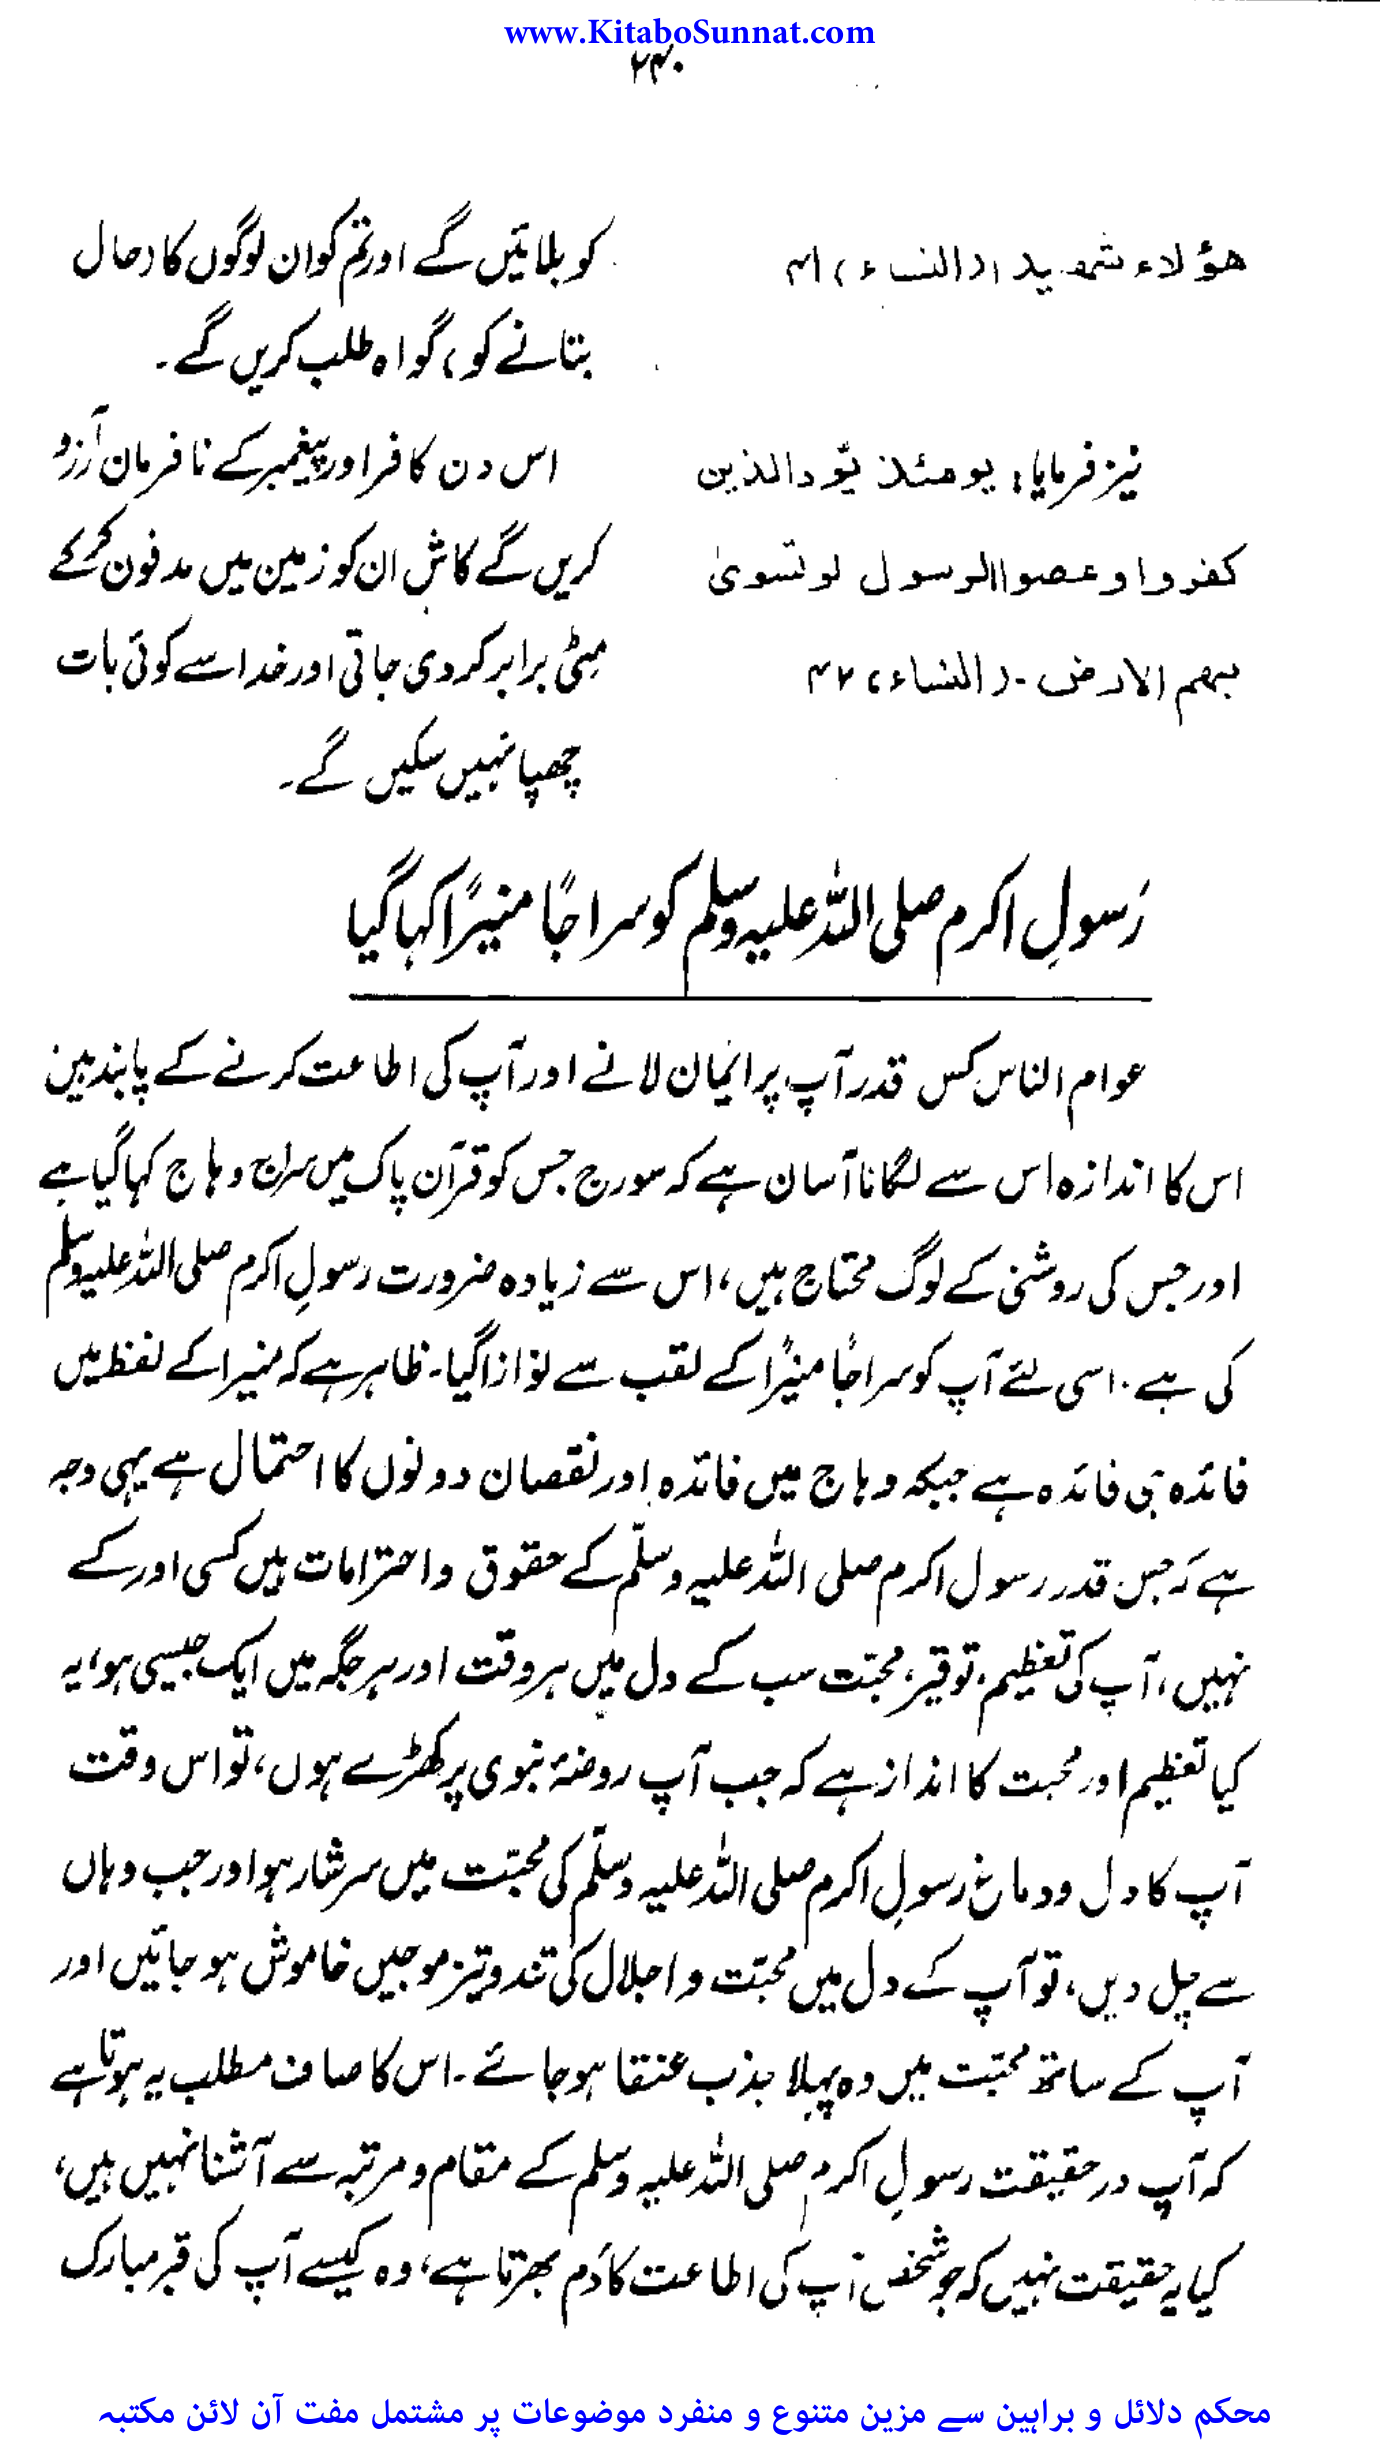 www.KitaboSunnat.com
۲۴۰
ھؤلاء شھیدا (النساء) ۴۱
کو بلائیں گے اور تم کو ان لوگوں کا (حال
بتانے کو) گواہ طلب کریں گے۔
نیز فرمایا: یومئذ یّود الذین
اس دن کافر اور پیغمبر کے نافرمان آرزو
کفروا وعصوا الرسول لو تسویٰ
کریں گے کاش ان کو زمین میں مدفون کرکے
بھم الارض۔ (النساء) ۴۲
مٹی برابر کر دی جاتی اور خدا سے کوئی بات
چھپا نہیں سکیں گے۔
رَسولِ اکرم صلی اللہ علیہ وسلم کو سراجًا منیرًا کہا گیا
عوام الناس کس قدر آپ پر ایمان لانے اور آپ کی اطاعت کرنے کے پابند ہیں
اس کا اندازہ اس سے لگانا آسان ہے کہ سورج جس کو قرآن پاک میں سراج وہاج کہا گیا ہے
اور جس کی روشنی کے لوگ محتاج ہیں، اس سے زیادہ ضرورت رسولِ اکرم صلی اللہ علیہ وسلم
کی ہے۔ اسی لئے آپ کو سراجًا منیرًا کے لقب سے نوازا گیا۔ ظاہر ہے کہ منیرا کے لفظ میں
فائدہ ہی فائدہ ہے جبکہ وہاج میں فائدہ اور نقصان دونوں کا احتمال ہے یہی وجہ
ہے کہ جس قدر رسول اکرم صلی اللہ علیہ وسلّم کے حقوق واحترامات ہیں کسی اور کے
نہیں، آپ کی تعظیم، توقیر، محبّت سب کے دل میں ہر وقت اور ہر جگہ میں ایک جیسی ہو، یہ
کیا تعظیم اور محبت کا انداز ہے کہ جب آپ روضۂ نبوی پر کھڑے ہوں، تو اس وقت
آپ کا دل ودماغ رسولِ اکرم صلی اللہ علیہ وسلّم کی محبّت میں سرشار ہو اور جب وہاں
سے چل دیں، تو آپ کے دل میں محبّت و اجلال کی تند و تیز موجیں خاموش ہو جائیں اور
آپ کے ساتھ محبّت میں وہ پہلا جذب عنقا ہو جائے۔ اس کا صاف مطلب یہ ہوتا ہے
کہ آپ درحقیقت رسولِ اکرم صلی اللہ علیہ وسلم کے مقام و مرتبہ سے آشنا نہیں ہیں،
کیا یہ حقیقت نہیں کہ جو شخص آپ کی اطاعت کا دَم بھرتا ہے، وہ کیسے آپ کی قبر مبارک
محکم دلائل و براہین سے مزین متنوع و منفرد موضوعات پر مشتمل مفت آن لائن مکتبہ